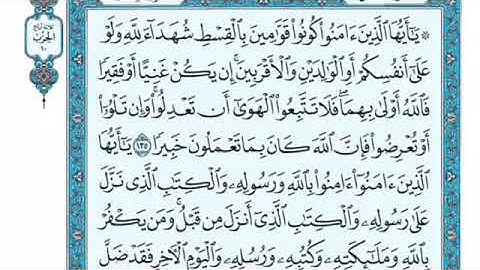 ۞ يَٰٓأَيُّهَا ٱلَّذِينَ ءَامَنُوا۟ كُونُوا۟ قَوَّٰمِينَ بِٱلْقِسْطِ شُهَدَآءَ لِلَّهِ وَلَوْ
عَلَىٰٓ أَنفُسِكُمْ أَوِ ٱلْوَٰلِدَيْنِ وَٱلْأَقْرَبِينَ ۚ إِن يَكُنْ غَنِيًّا أَوْ فَقِيرًا
فَٱللَّهُ أَوْلَىٰ بِهِمَا ۖ فَلَا تَتَّبِعُوا۟ ٱلْهَوَىٰٓ أَن تَعْدِلُوا۟ ۚ وَإِن تَلْوُۥٓا۟
أَوْ تُعْرِضُوا۟ فَإِنَّ ٱللَّهَ كَانَ بِمَا تَعْمَلُونَ خَبِيرًا ١٣٥ يَٰٓأَيُّهَا
ٱلَّذِينَ ءَامَنُوٓا۟ ءَامِنُوا۟ بِٱللَّهِ وَرَسُولِهِۦ وَٱلْكِتَٰبِ ٱلَّذِى نَزَّلَ
عَلَىٰ رَسُولِهِۦ وَٱلْكِتَٰبِ ٱلَّذِىٓ أَنزَلَ مِن قَبْلُ ۚ وَمَن يَكْفُرْ
بِٱللَّهِ وَمَلَٰٓئِكَتِهِۦ وَكُتُبِهِۦ وَرُسُلِهِۦ وَٱلْيَوْمِ ٱلْءَاخِرِ فَقَدْ ضَلَّ
الحزب
١٠